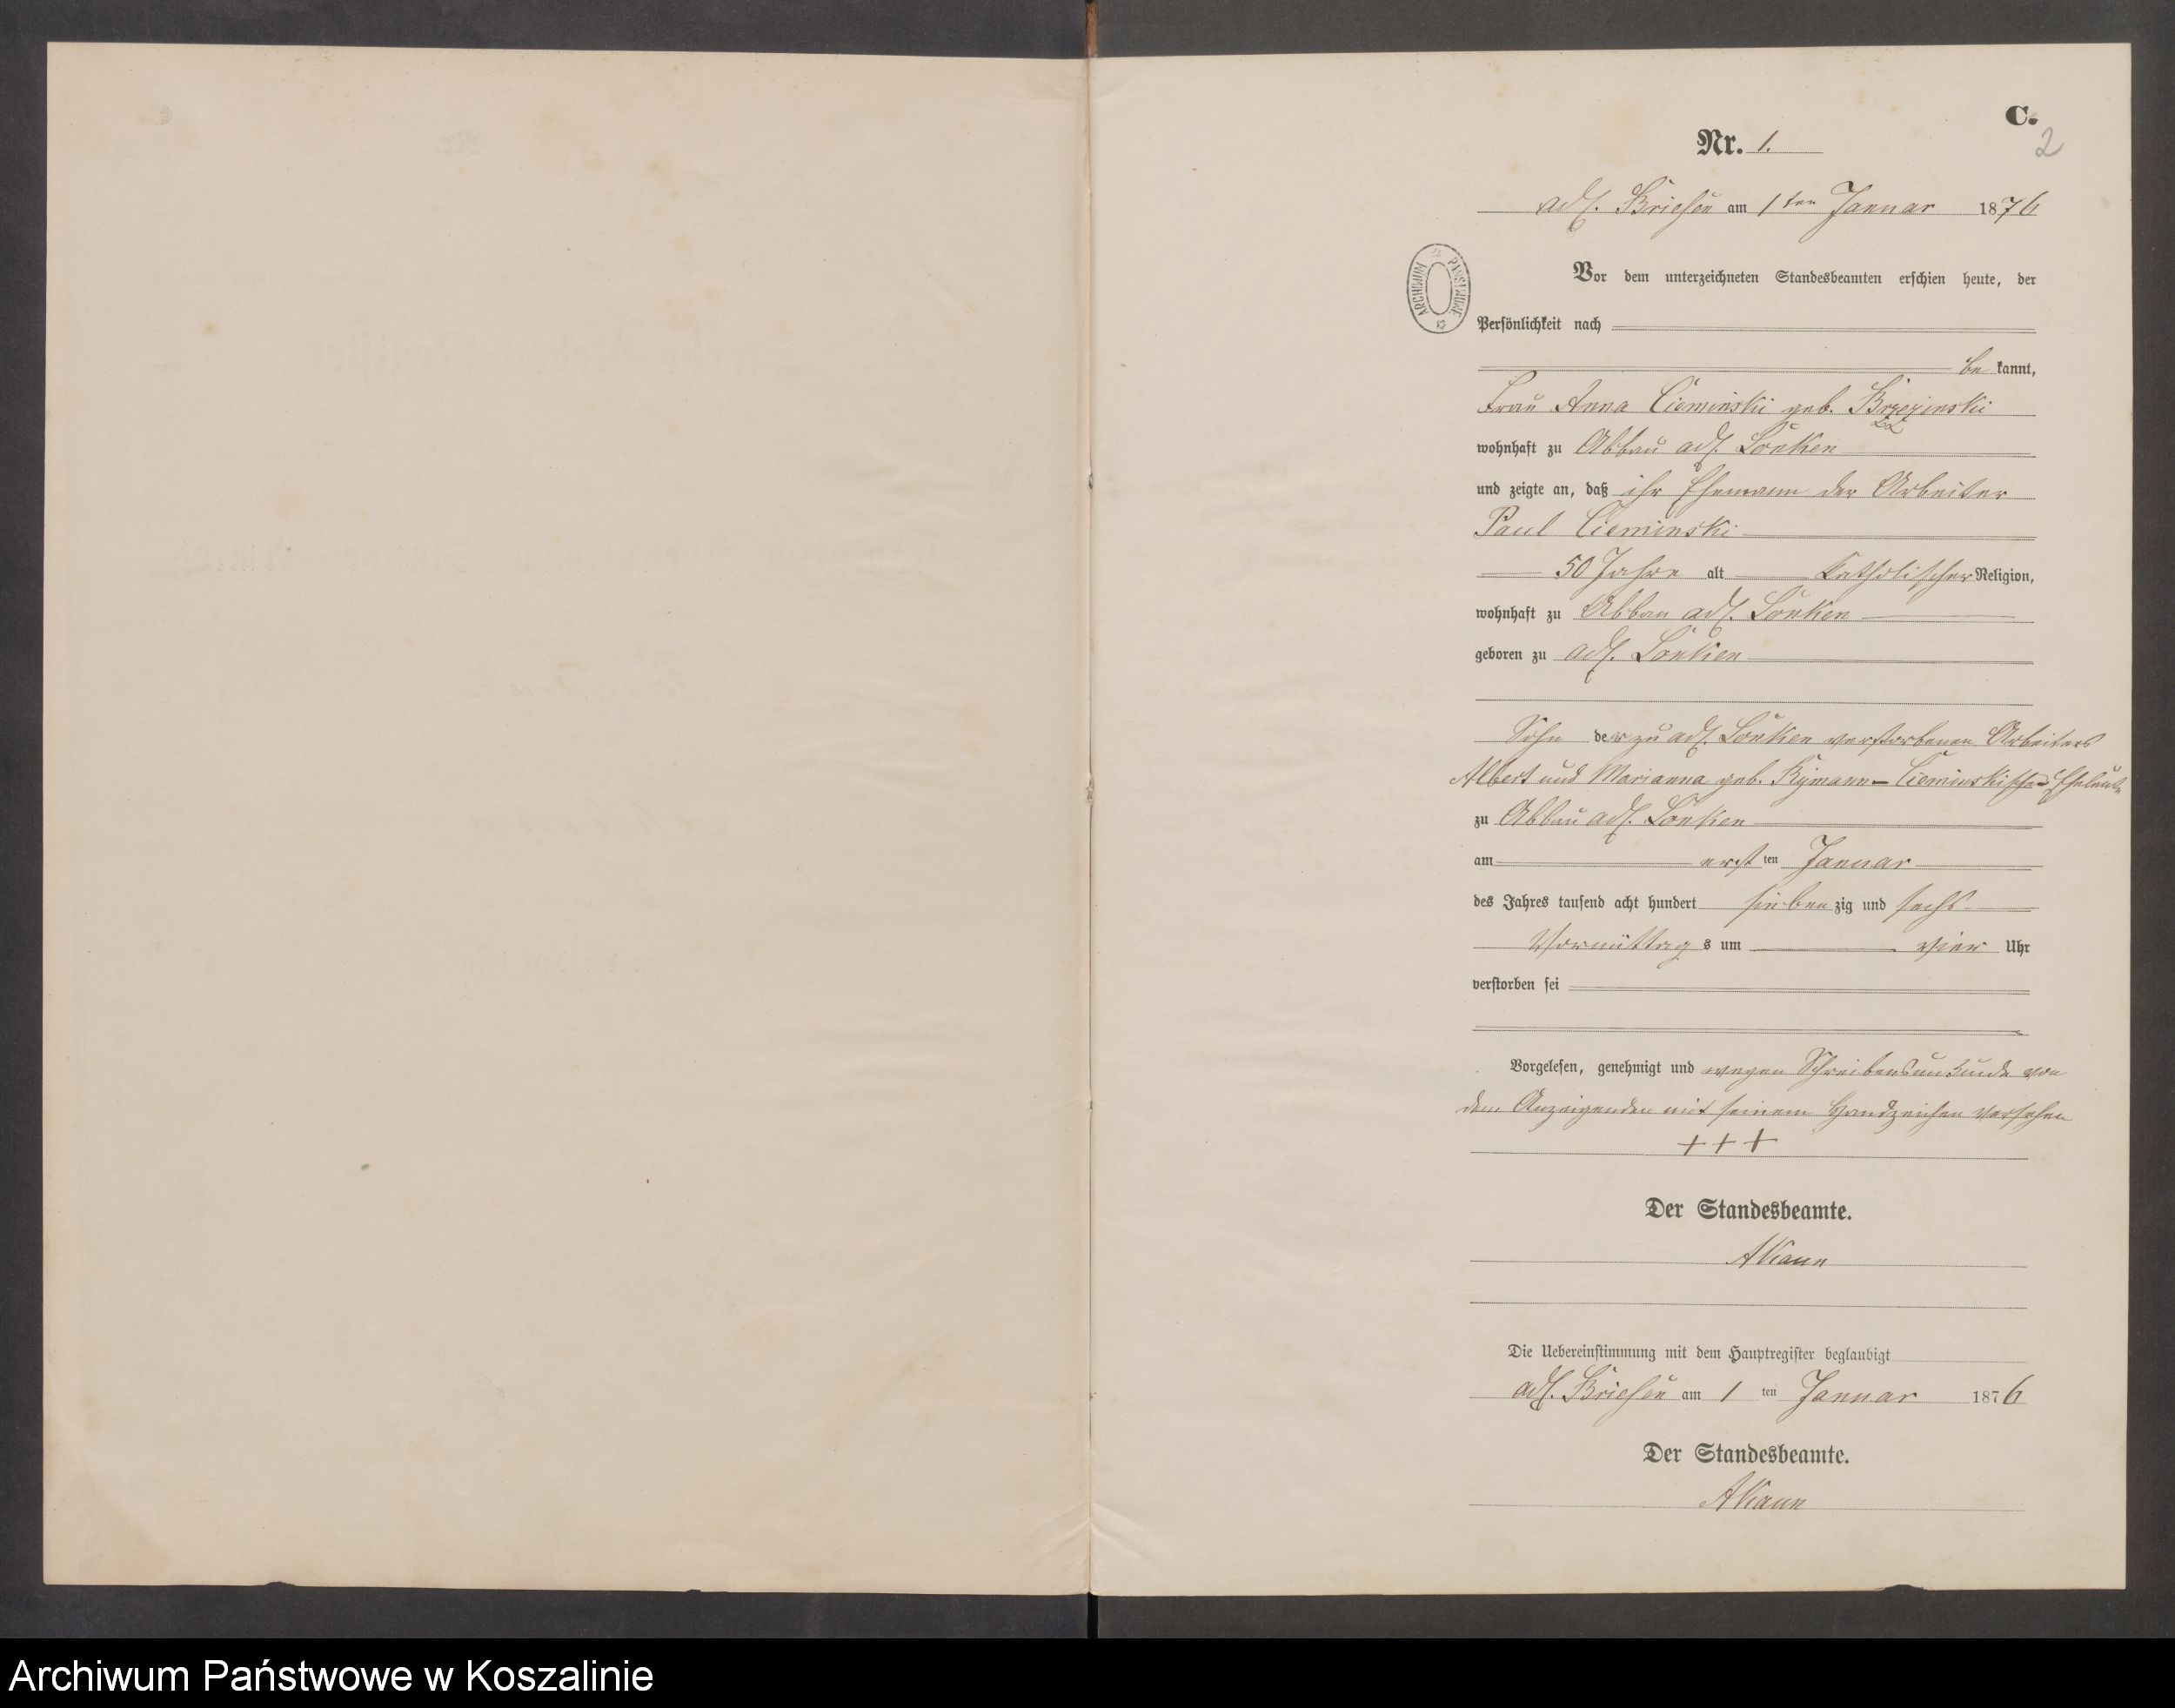 C.
2
Nr. 1.
adl. Briesen am 1ten Januar 1876
Vor dem unterzeichneten Standesbeamten erschien heute, der
Persönlichkeit nach
be kannt,
Frau Anna Cieminski geb. Brzezinski
wohnhaft zu Abbau adl. Lonken
und zeigte an, daß ihr Ehemann der Arbeiter
Paul Cieminski
50 Jahre alt katholischer Religion,
wohnhaft zu Abbau adl. Lonken
geboren zu adl. Lonken
Sohn der zu adl. Lonken verstorbenen Arbeiters
Albert und Marianna geb. Cieminskischen Eheleute
zu Abbau adl. Lonken
am erst ten Januar
des Jahres tausend acht hundert sieben zig und sechs
Vormittag s um vier Uhr
verstorben sei
Vorgelesen, genehmigt und wegen Schreibensunkunde von
dem Anzeigenden mit seinem Handzeichen versehen
+++
Der Standesbeamte.
Die Uebereinstimmung mit dem Hauptregister beglaubigt
adl. Briesen am 1 ten Januar 1876
Der Standesbeamte.
ARCHIWUM PAŃSTWOWE
Archiwum Państwowe w Koszalinie